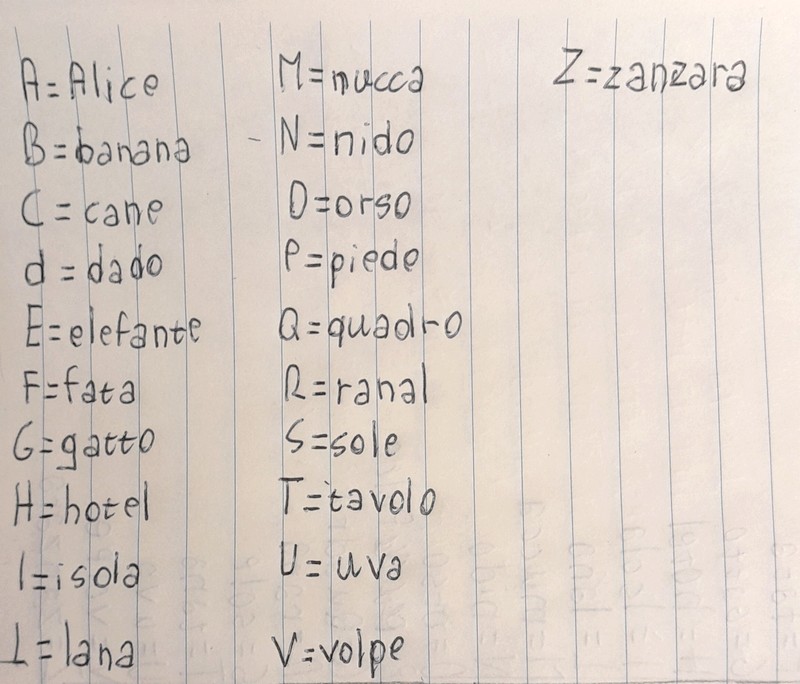 A=Alice
B=banana
C=cane
d=dado
E=elefante
F=fata
G=gatto
H=hotel
I=isola
L=lana
M=mucca
N=nido
O=orso
P=piede
Q=quadro
R=rana
S=sole
T=tavolo
U=uva
V=volpe
Z=zanzara